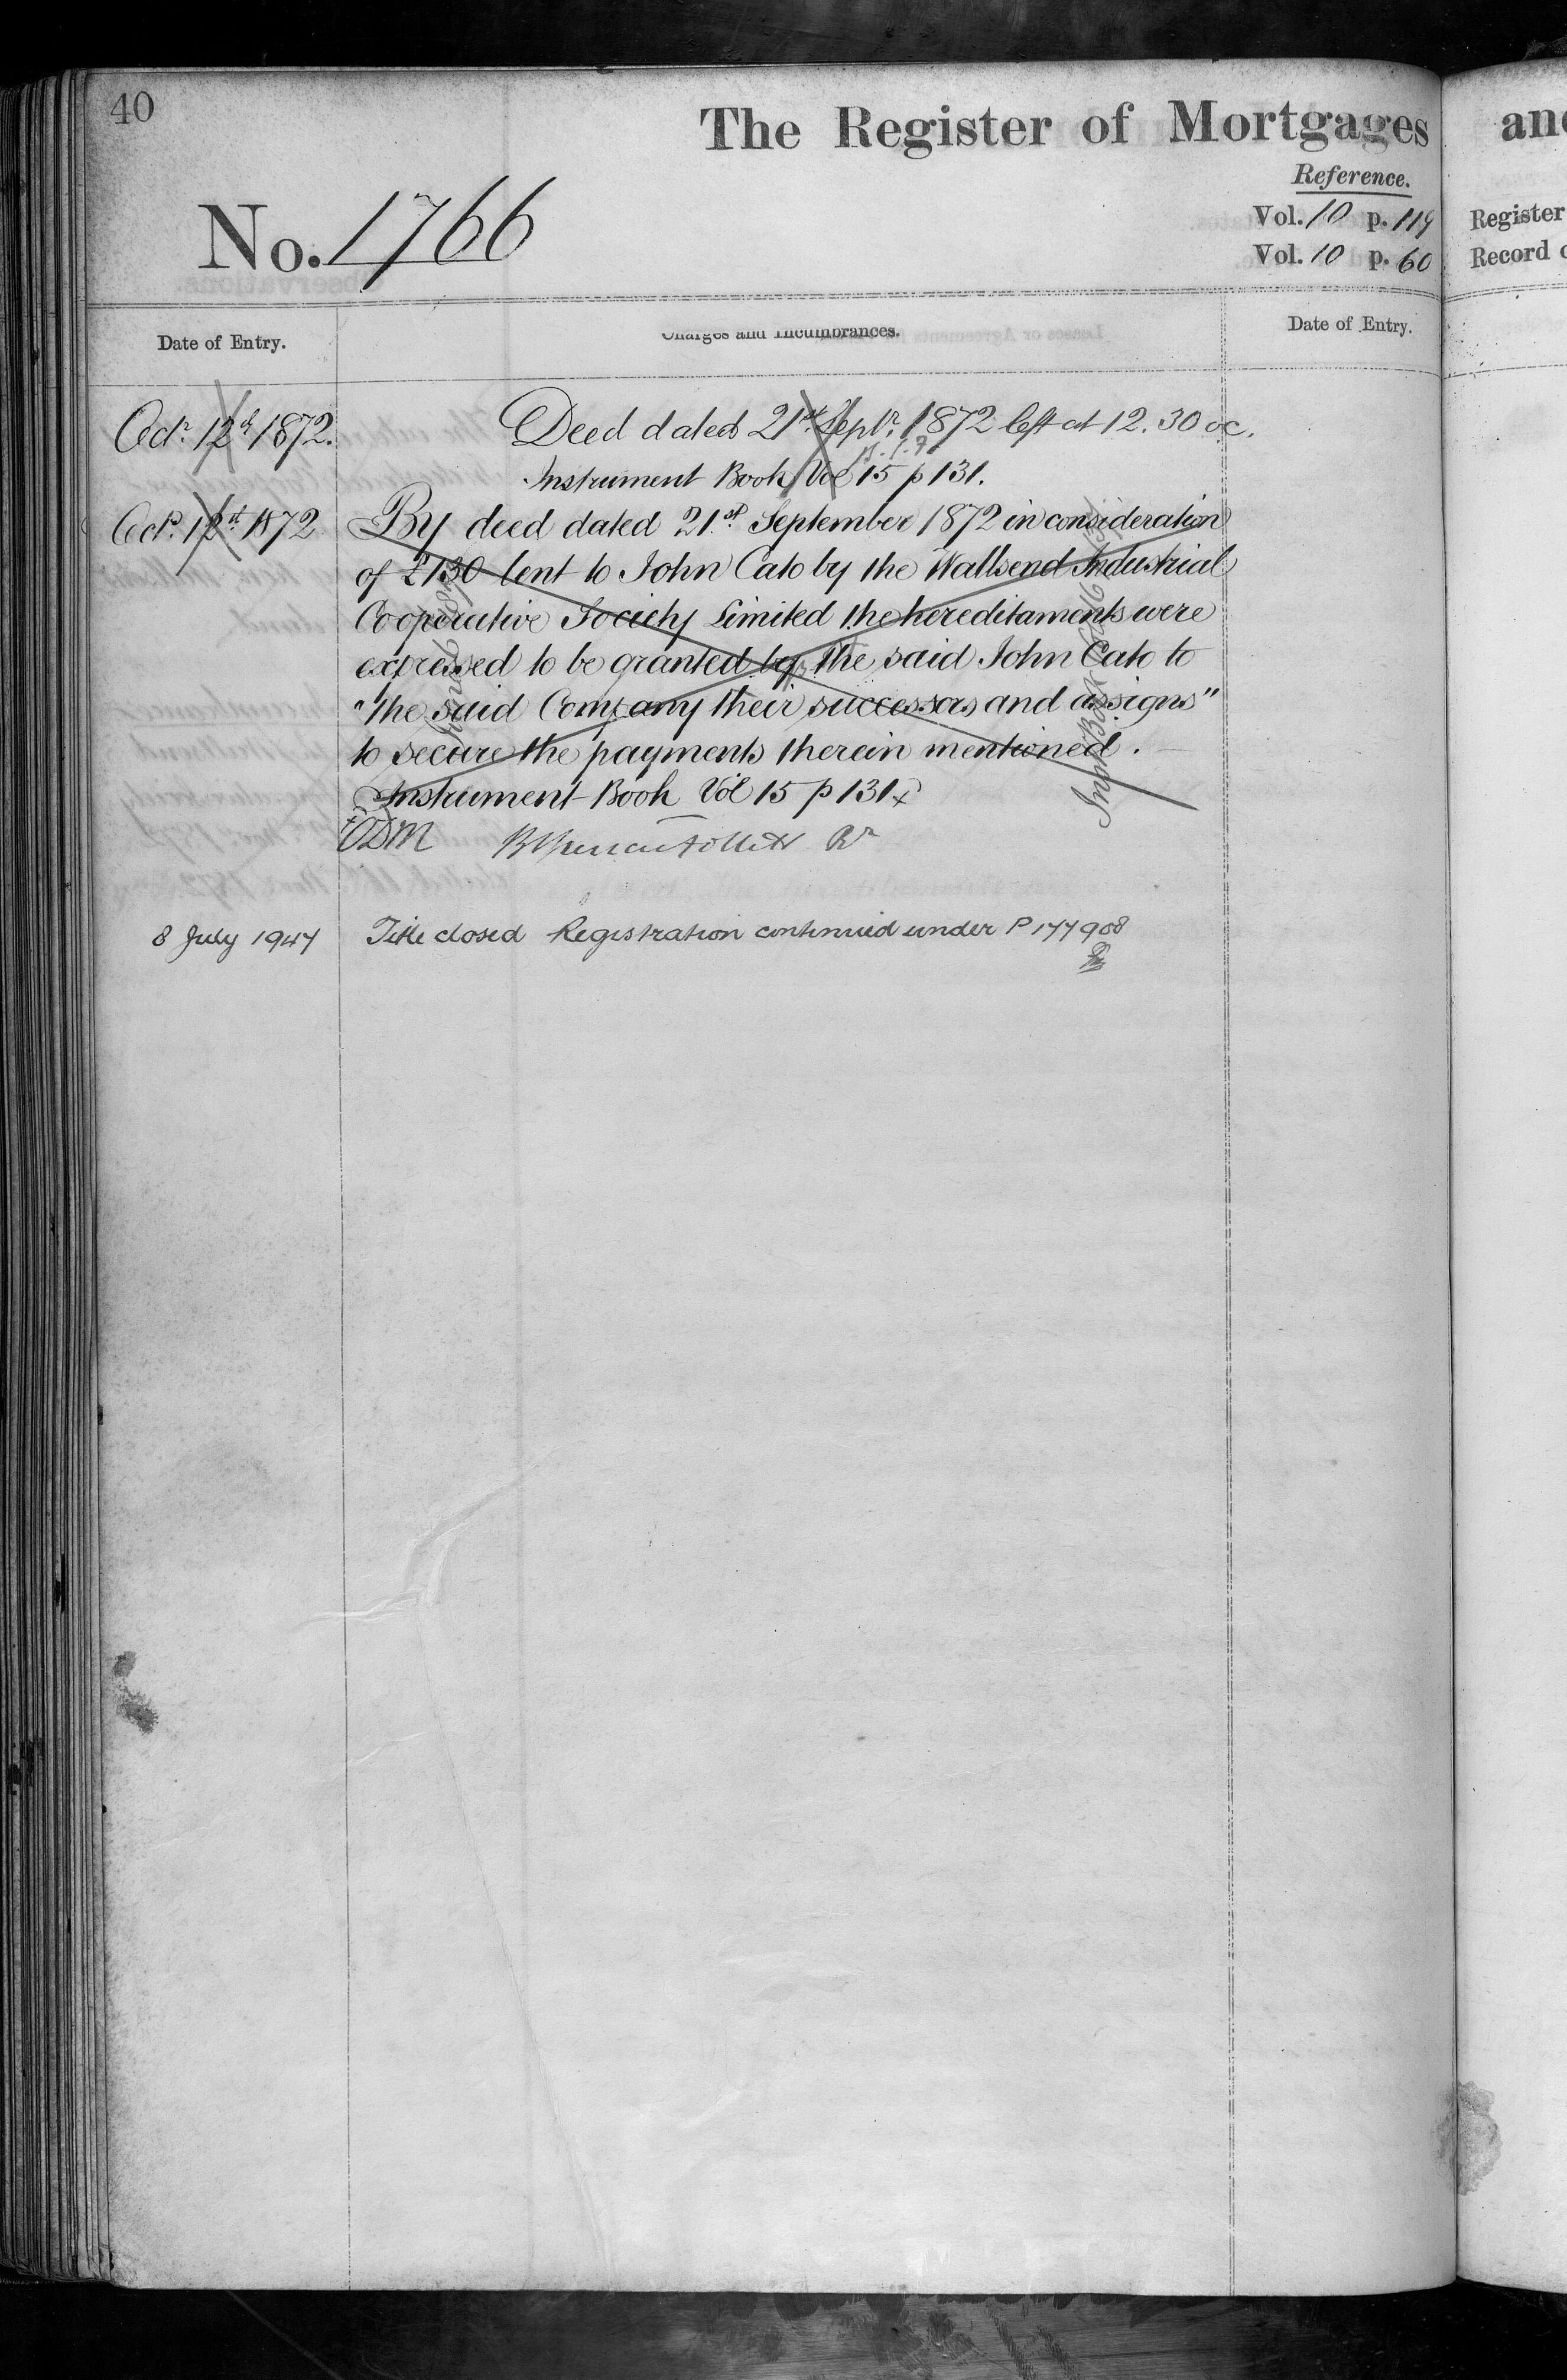 40
The Register of Mortgages
Reference.
No. 1766
Vol. 10 p. 119
Vol. 10 p. 60
Date of Entry.
Charges and Incumbrances.
Date of Entry.
Octr. 12th 1872.
Deed dated 21st Septr. 1872 left at 12.30 oc.
Instrument Book Vol 15 p 131.
Octr. 12th 1872
By deed dated 21st September 1872 in consideration
of £130 lent to John Cato by the Wallsend Industrial
Cooperative Society Limited the hereditaments were
expressed to be granted by the said John Cato to
"the said Company their successors and assigns"
to secure the payments therein mentioned.
Instrument Book Vol 15 p 131
ODM
8 July 1947
Title closed Registration continued under P 177908
and
Register
Record